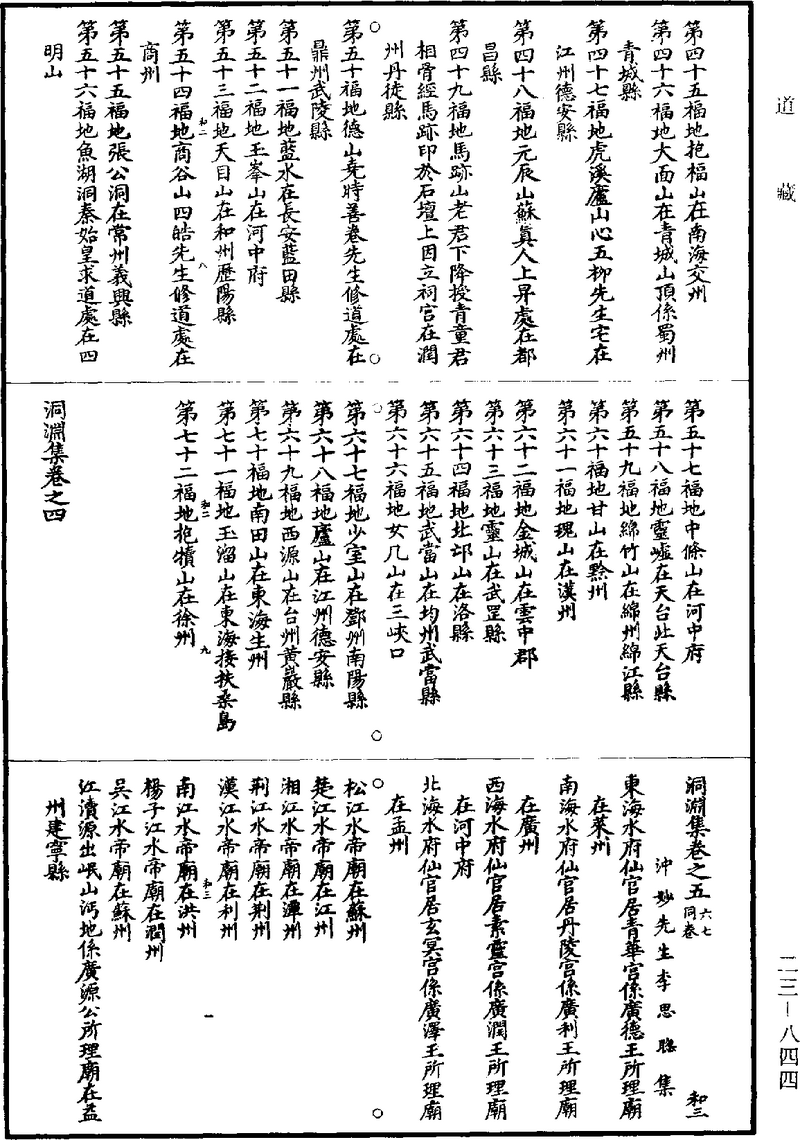 道藏
第四十五福地抱福山在南海交州
第四十六福地大面山在青城山頂係蜀州
青城縣
第四十七福地虎溪廬山心五柳先生宅在
江州德安縣
第四十八福地元辰山蘇真人上昇處在都
昌縣
第四十九福地馬跡山老君下降授青童君
相骨經馬跡印於石壇上因立祠宫在潤
州丹徒縣
第五十福地德山堯時善卷先生修道處在
鼎州武陵縣
第五十一福地藍水在長安藍田縣
第五十二福地玉峯山在河中府
第五十三福地天目山在和州歷陽縣
和二 八
第五十四福地商谷山四皓先生修道處在
商州
第五十五福地張公洞在常州義興縣
第五十六福地魚湖洞秦始皇求道處在四
明山
第五十七福地中條山在河中府
第五十八福地靈墟在天台北天台縣
第五十九福地綿竹山在綿州綿江縣
第六十福地甘山在黔州
第六十一福地瑰山在漢州
第六十二福地金城山在雲中郡
第六十三福地靈山在武罡縣
第六十四福地北邙山在洛縣
第六十五福地武當山在均州武當縣
第六十六福地女几山在三峽口
第六十七福地少室山在鄧州南陽縣
第六十八福地廬山在江州德安縣
第六十九福地西源山在台州黄巖縣
第七十福地南田山在東海生州
第七十一福地玉溜山在東海接扶桑島
和二 九
第七十二福地抱犢山在徐州
洞淵集卷之四
洞淵集卷之五 六七同卷 和三
沖妙先生李思聰集
東海水府仙官居青華宫係廣德王所理廟
在萊州
南海水府仙官居丹陵宫係廣利王所理廟
在廣州
西海水府仙官居素靈宫係廣潤王所理廟
在河中府
北海水府仙官居玄冥宫係廣澤王所理廟
在孟州
松江水帝廟在蘇州
楚江水帝廟在江州
湘江水帝廟在潭州
荆江水帝廟在荆州
漢江水帝廟在利州
和三 一
南江水帝廟在洪州
楊子江水帝廟在潤州
吴江水帝廟在蘇州
江瀆源出岷山沔地係廣源公所理廟在益
州建寧縣
二三—八四四